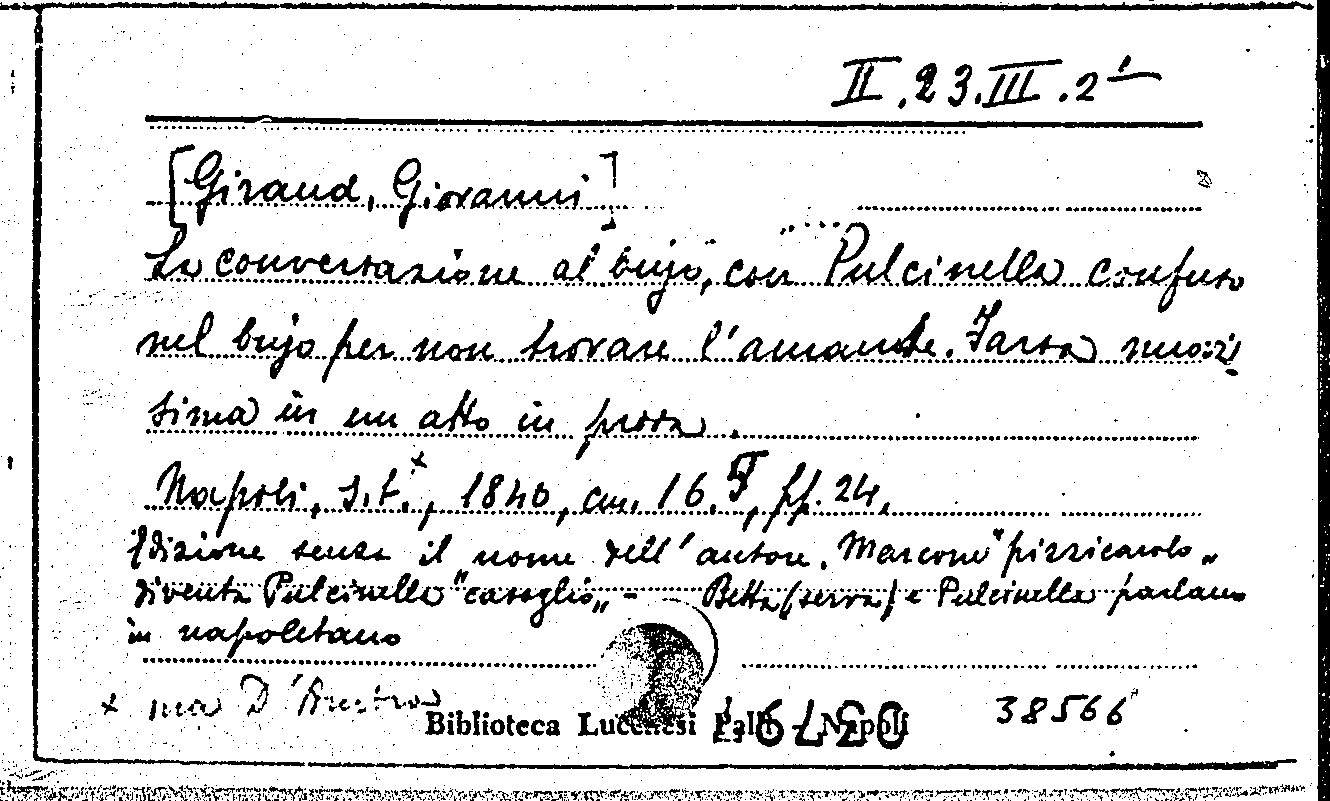 II.23.III.2¹
[Giraud, Giovanni]
La conversazione al bujo, con Pulcinella confuso
nel bujo per non trovare l'amante. Farsa nuovis
sima in un atto in prosa.
Napoli, s.t.ˣ, 1840, cm. 16.5, ff. 24.
Edizione senza il nome dell'autore. Marcone "pizzicarolo„
diventa Pulcinella "casoglio„ - Betta (serva) e Pulcinella parlano
in napoletano
x ma D'Ambra
Biblioteca Lucchesi Palli - Napoli 38566